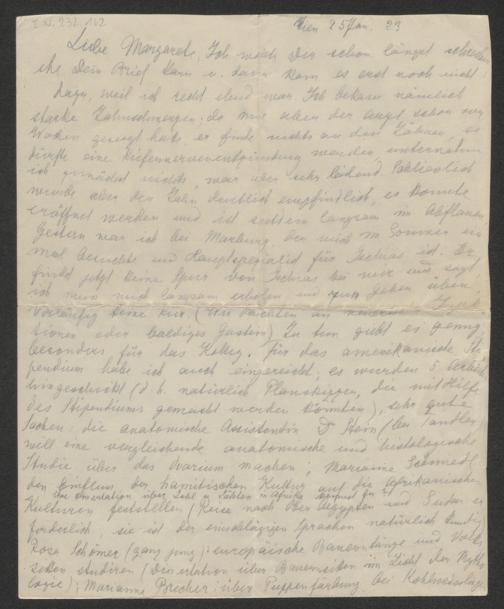 I.N. 232.162
Wien 25 Jan. 23
Liebe Margarete, Ich wollte Dir schon längst schreiben
ehe Dein Brief kam u. dann kam es erst noch nicht
dazu, weil ich recht elend war. Ich bekam nämlich
starke Zahnschmerzen; da mir aber der Arzt schon vor
Wochen gesagt hat, er finde nichts an den Zähnen, es
dürfte eine Kiefernervenentzündung werden, unternahm
ich zunächst nichts, war aber sehr leidend. Schliesslich
wurde aber der Zahn deutlich empfindlich, es konnte
eröffnet werden und ist seitdem langsam im Abflauen
Gestern war ich bei Marburg, der mich im Sommer
mal besuchte und Hauptspezialist für Ischias ist. Er
findet jetzt keine Spur von Ischias bei mir und sagt
ich muss mich langsam erholen und gehen üben
Vorläufig keine Kur
tionen oder baldiges Gastein) Zu tun gibt es genug
besonders für das Kolleg. Für das amerikanische Sti
pendium habe ich auch eingereicht; es wurden 5 Arbeiten
hingeschickt (d. h. natürlich Planskizzen, die mit Hilfe
des Stipendiums gemacht werden könnten), sehr gute
Sachen: die anatomische Assistentin Dr Stern (bei Tandler)
will eine vergleichende anatomische und histologische
Studie über das Ovarium machen; Marianne Schmidl
den Einfluss der hamitischen Kultur auf die afrikanischen
ihre Dissertation über Zahl u Zählen in Afrika
Kulturen feststellen (Reise nach Ober Ägypten und Sudan er
forderlich, sie ist der einschlägigen Sprachen natürlich kundig)
Rosa Schömer (ganz jung): europäische Bauerntänze und Volks
sitten studieren (Dissertation über Bauernsitten im Licht der Mytho
logie); Marianne Brecher: über Puppenfärbung bei Kohlweissling